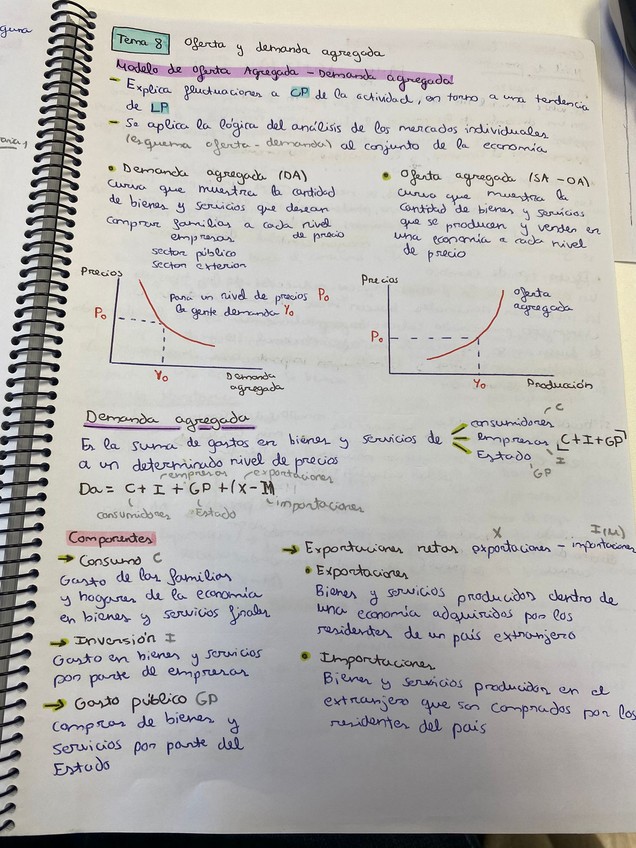 Tema 8: Oferta y demanda agregada
Modelo de Oferta Agregada - Demanda agregada
- Explica fluctuaciones a CP de la actividad, en torno a una tendencia
de LP
- Se aplica la lógica del análisis de los mercados individuales
(esquema oferta - demanda) al conjunto de la economía
• Demanda agregada (DA)
curva que muestra la cantidad
de bienes y servicios que desean
comprar familias a cada nivel
empresas de precio
sector público
sector exterior
• Oferta agregada (SA - OA)
curva que muestra la
cantidad de bienes y servicios
que se producen y venden en
una economía a cada nivel
de precio
Precios
Para un nivel de precios P₀
la gente demanda Y₀
P₀
Y₀
Demanda
agregada
Precios
Oferta
agregada
P₀
Y₀
Producción
Demanda agregada
Es la suma de gastos en bienes y servicios de
a un determinado nivel de precios
consumidores C
empresas I
Estado GP
[C+I+GP]
empresas exportaciones
Da = C + I + GP + (X - M)
consumidores Estado importaciones
Componentes
→ Consumo C
Gasto de las familias
y hogares de la economía
en bienes y servicios finales
→ Inversión I
Gasto en bienes y servicios
por parte de empresas
→ Gasto público GP
compras de bienes y
servicios por parte del
Estado
X I(M)
→ Exportaciones netas exportaciones - importaciones
• Exportaciones
Bienes y servicios producidos dentro de
una economía adquiridos por los
residentes de un país extranjero
• Importaciones
Bienes y servicios producidos en el
extranjero que son comprados por los
residentes del país